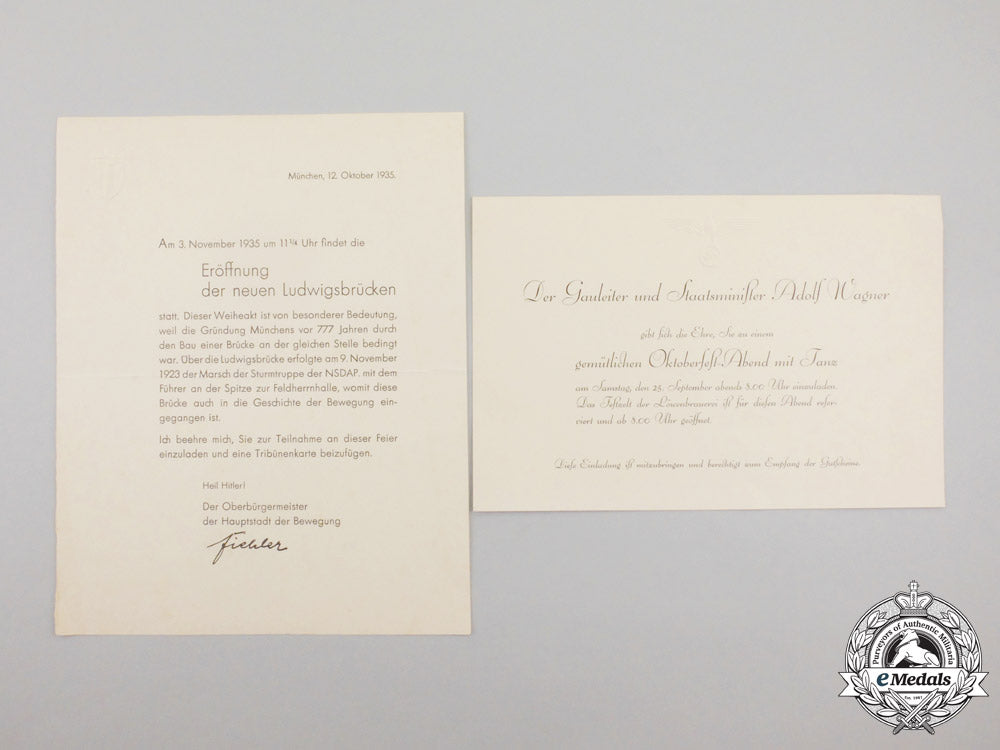 München, 12. Oktober 1935.
Am 3. November 1935 um 11 1/4 Uhr findet die
Eröffnung
der neuen Ludwigsbrücken
statt. Dieser Weiheakt ist von besonderer Bedeutung,
weil die Gründung Münchens vor 777 Jahren durch
den Bau einer Brücke an der gleichen Stelle bedingt
war. Über die Ludwigsbrücke erfolgte am 9. November
1923 der Marsch der Sturmtruppe der NSDAP. mit dem
Führer an der Spitze zur Feldherrnhalle, womit diese
Brücke auch in die Geschichte der Bewegung ein-
gegangen ist.
Ich beehre mich, Sie zur Teilnahme an dieser Feier
einzuladen und eine Tribünenkarte beizufügen.
Heil Hitler!
Der Oberbürgermeister
der Hauptstadt der Bewegung
Fiehler
Der Gauleiter und Staatsminister Adolf Wagner
gibt sich die Ehre, Sie zu einem
gemütlichen Oktoberfest-Abend mit Tanz
am Samstag, den 25. September abends 8.00 Uhr einzuladen.
Das Festzelt der Löwenbrauerei ist für diesen Abend reser-
viert und ab 8.00 Uhr geöffnet.
Diese Einladung ist mitzubringen und berechtigt zum Empfang der Gutscheine.
Purveyors of Authentic Militaria
eMedals
Est. 1987